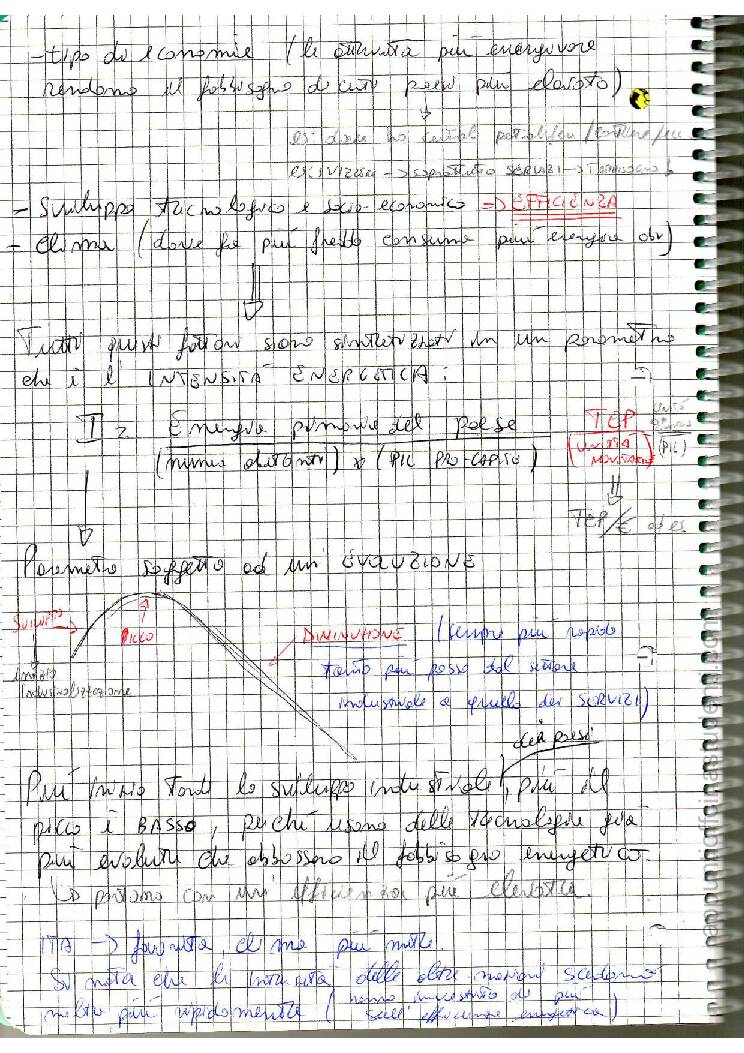 - tipo di economie (le attività più energivore
rendono il fabbisogno di certi paesi più elevato)
es: dove ho
es: svizzera -> soprattutto SERVIZI ->
- Sviluppo tecnologico e socio-economico => EFFICIENZA
- Clima (dove fa più freddo consumo più energia)
Tutti questi fattori sono sintetizzati in un parametro
che è l'INTENSITÀ ENERGETICA:
I = Energia primaria del paese
(numero abitanti) x (PIL PRO-CAPITE)
TEP
(UNITÀ MONETARIA) (PIL)
TEP/€ ad es.
Parametro soggetto ad un' EVOLUZIONE
SVILUPPO
PICCO
inizio
industrializzazione
DIMINUZIONE (sempre più rapido
tanto più passo dal settore
industriale a quello dei SERVIZI)
dei paesi
Più inizio tardi lo sviluppo industriale, più il
picco è BASSO, perché usano delle tecnologie già
più evolute che abbassano il fabbisogno energetico.
-> partono con un' efficienza più elevata.
ITA -> favorita, clima più mite.
Si nota che le intensità delle altre nazioni scendono
molto più rapidamente (hanno investito di più
sull'efficienza energetica)